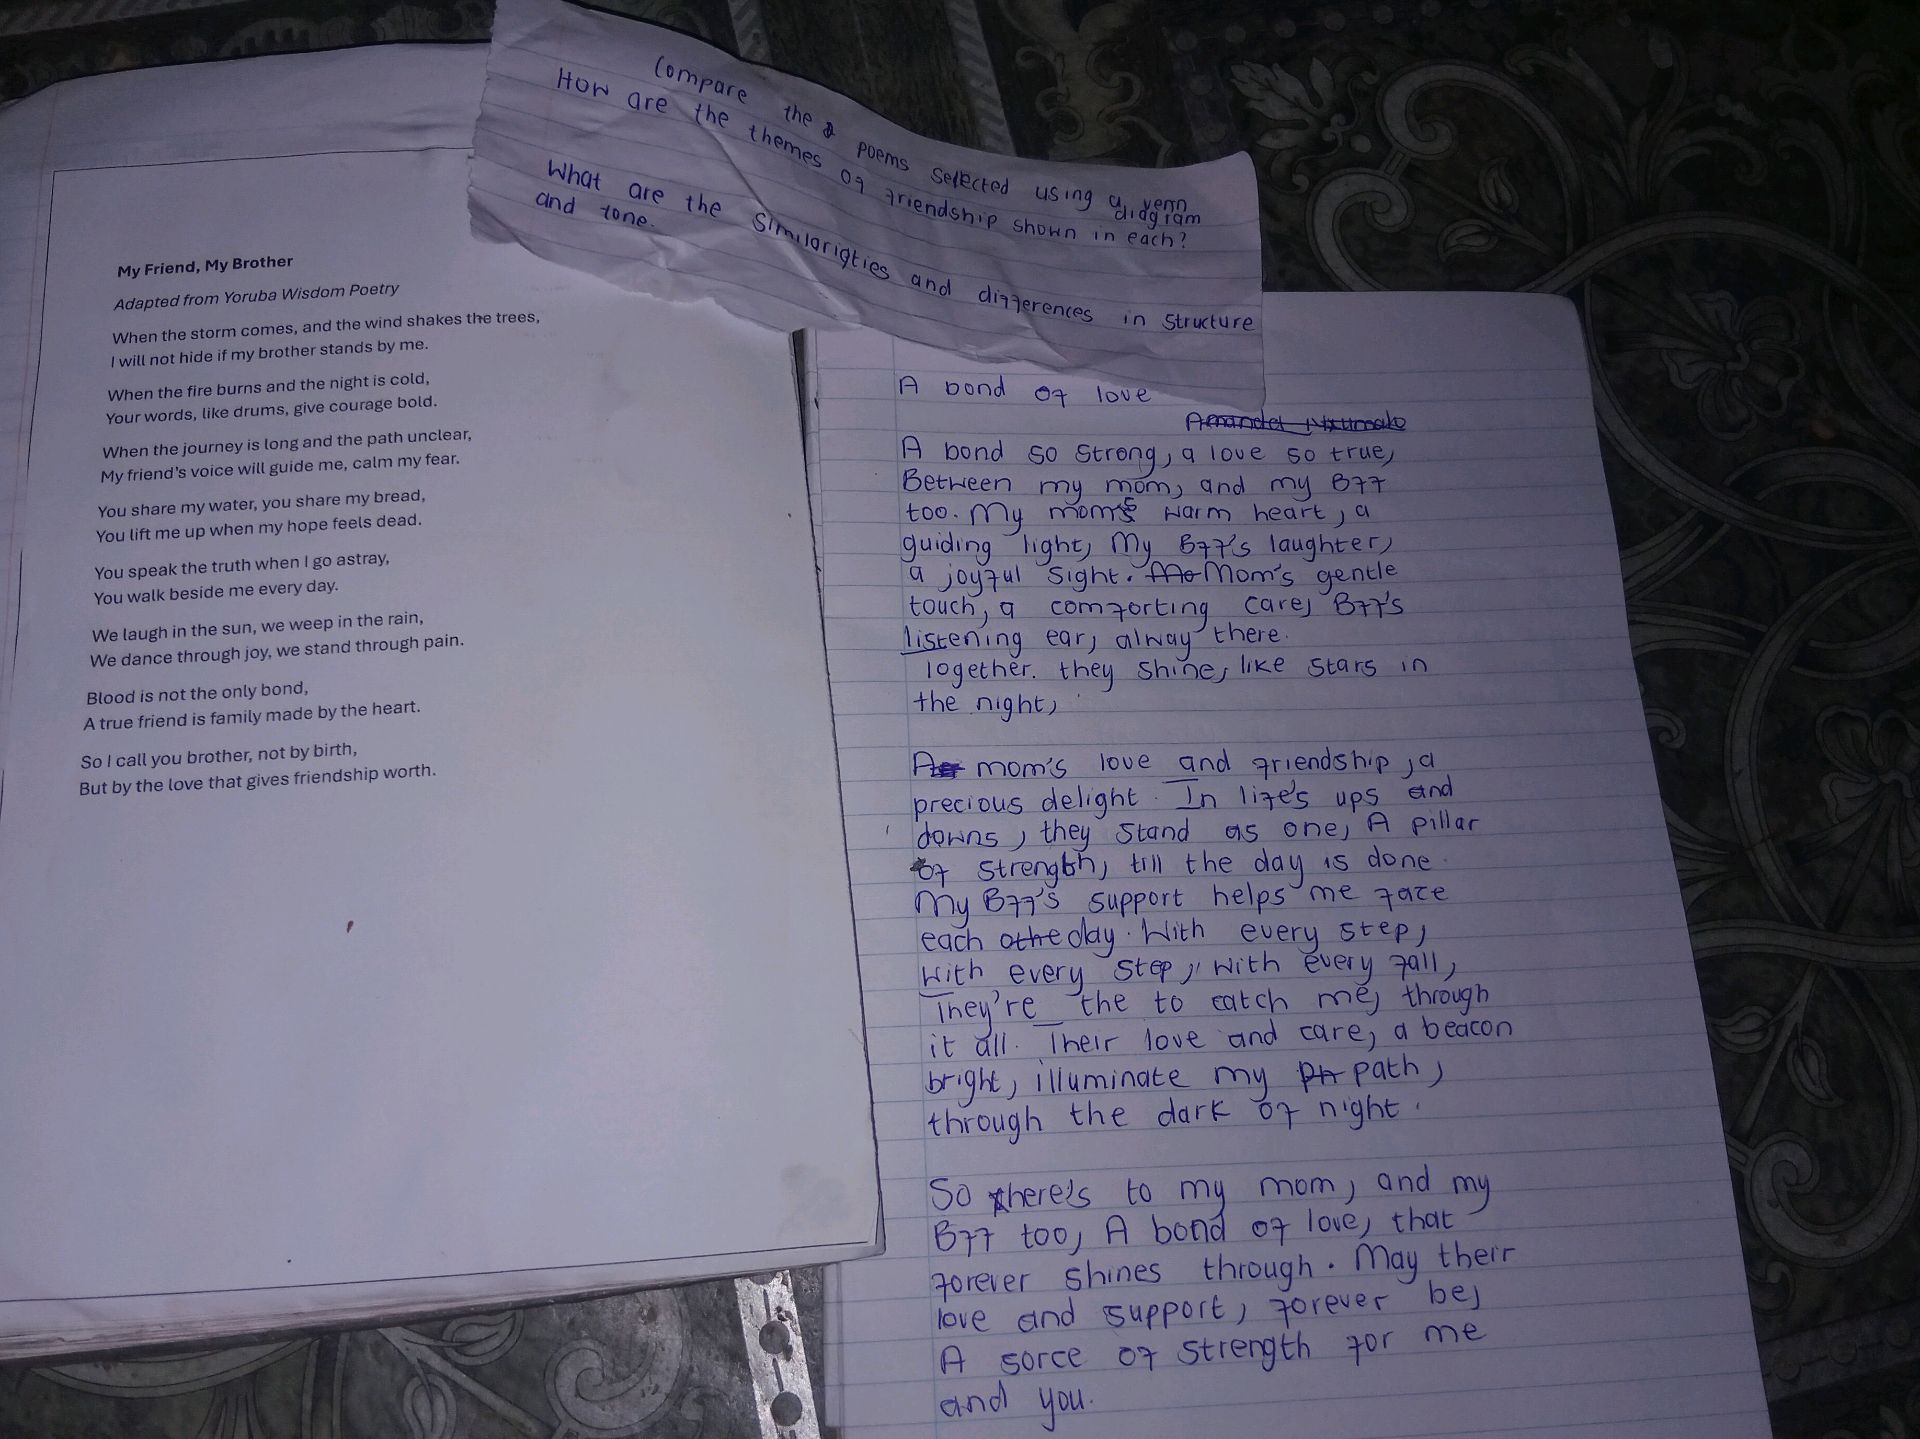 Compare the poems selected using a venn diagram
How are the themes of friendship shown in each?
What are the Similarigties and differences in structure
and tone.
My Friend, My Brother
Adapted from Yoruba Wisdom Poetry
When the storm comes, and the wind shakes the trees,
I will not hide if my brother stands by me.
When the fire burns and the night is cold,
Your words, like drums, give courage bold.
When the journey is long and the path unclear,
My friend's voice will guide me, calm my fear.
You share my water, you share my bread,
You lift me up when my hope feels dead.
You speak the truth when I go astray,
You walk beside me every day.
We laugh in the sun, we weep in the rain,
We dance through joy, we stand through pain.
Blood is not the only bond,
A true friend is family made by the heart.
So I call you brother, not by birth,
But by the love that gives friendship worth.
A bond of love
A bond so strong, a love so true,
Between my mom, and my Bff
too. My mom's warm heart, a
guiding light, My Bff's laughter,
a joyful sight. Mom's gentle
touch, a comforting care, Bff's
listening ear, alway there.
Together. they shine, like stars in
the night,
mom's love and friendship, a
precious delight. In life's ups and
downs, they stand as one, A pillar
of strength, till the day is done.
My Bff's support helps me face
each day. With every step,
with every step, with every fall,
They're the to catch me, through
it all. Their love and care, a beacon
bright, illuminate my path,
through the dark of night.
So here's to my mom, and my
Bff too, A bond of love, that
forever shines through. May their
love and support, forever be,
A sorce of strength for me
and you.